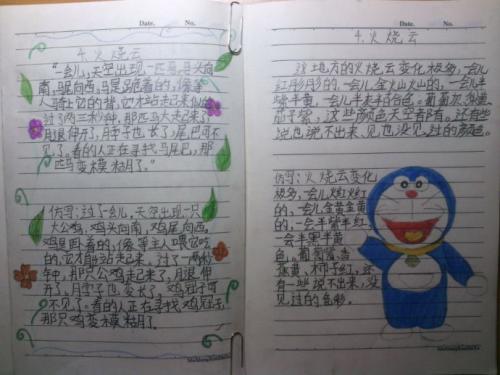 Date. No.
4. 火烧云
“一会儿,天空出现一匹马,马头向
南,马尾向西,马是跪着的,像等
人骑上它的背,它才站起来似的。
过了两三秒钟,那匹马大起来了
腿伸开了,脖子也长了,尾巴可
不见了。看的人正在寻找马尾巴,那
匹马变模糊了。”
仿写:过了一会儿,天空出现一只
大公鸡,鸡头向南,鸡尾向西,
鸡是跪着的,像等主人喂它吃
的,它才能站起来,过了一两秒
钟,那只公鸡起来了,腿伸
开了,鸡冠也变长了,鸡冠子可
不见了。看的人正在寻找鸡冠子
那只鸡变模糊了。
Date. No.
4. 火烧云
这地方的火烧云变化极多,一会儿
红彤彤的,一会儿金灿灿的,一会儿半
紫半黄,一会儿半灰半百合色。葡萄灰、梨黄、
茄子紫,这些颜色天空都有。还有些
说也说不出来、见也没见过的颜色。
仿写:火烧云变化
极多,一会儿火红火红
的,一会儿金黄金黄
的,一会半紫半红
一会半黑半黄
色,葡萄紫,香
蕉黄,柿子红,还
有一些说不出来,没
见过的色彩。